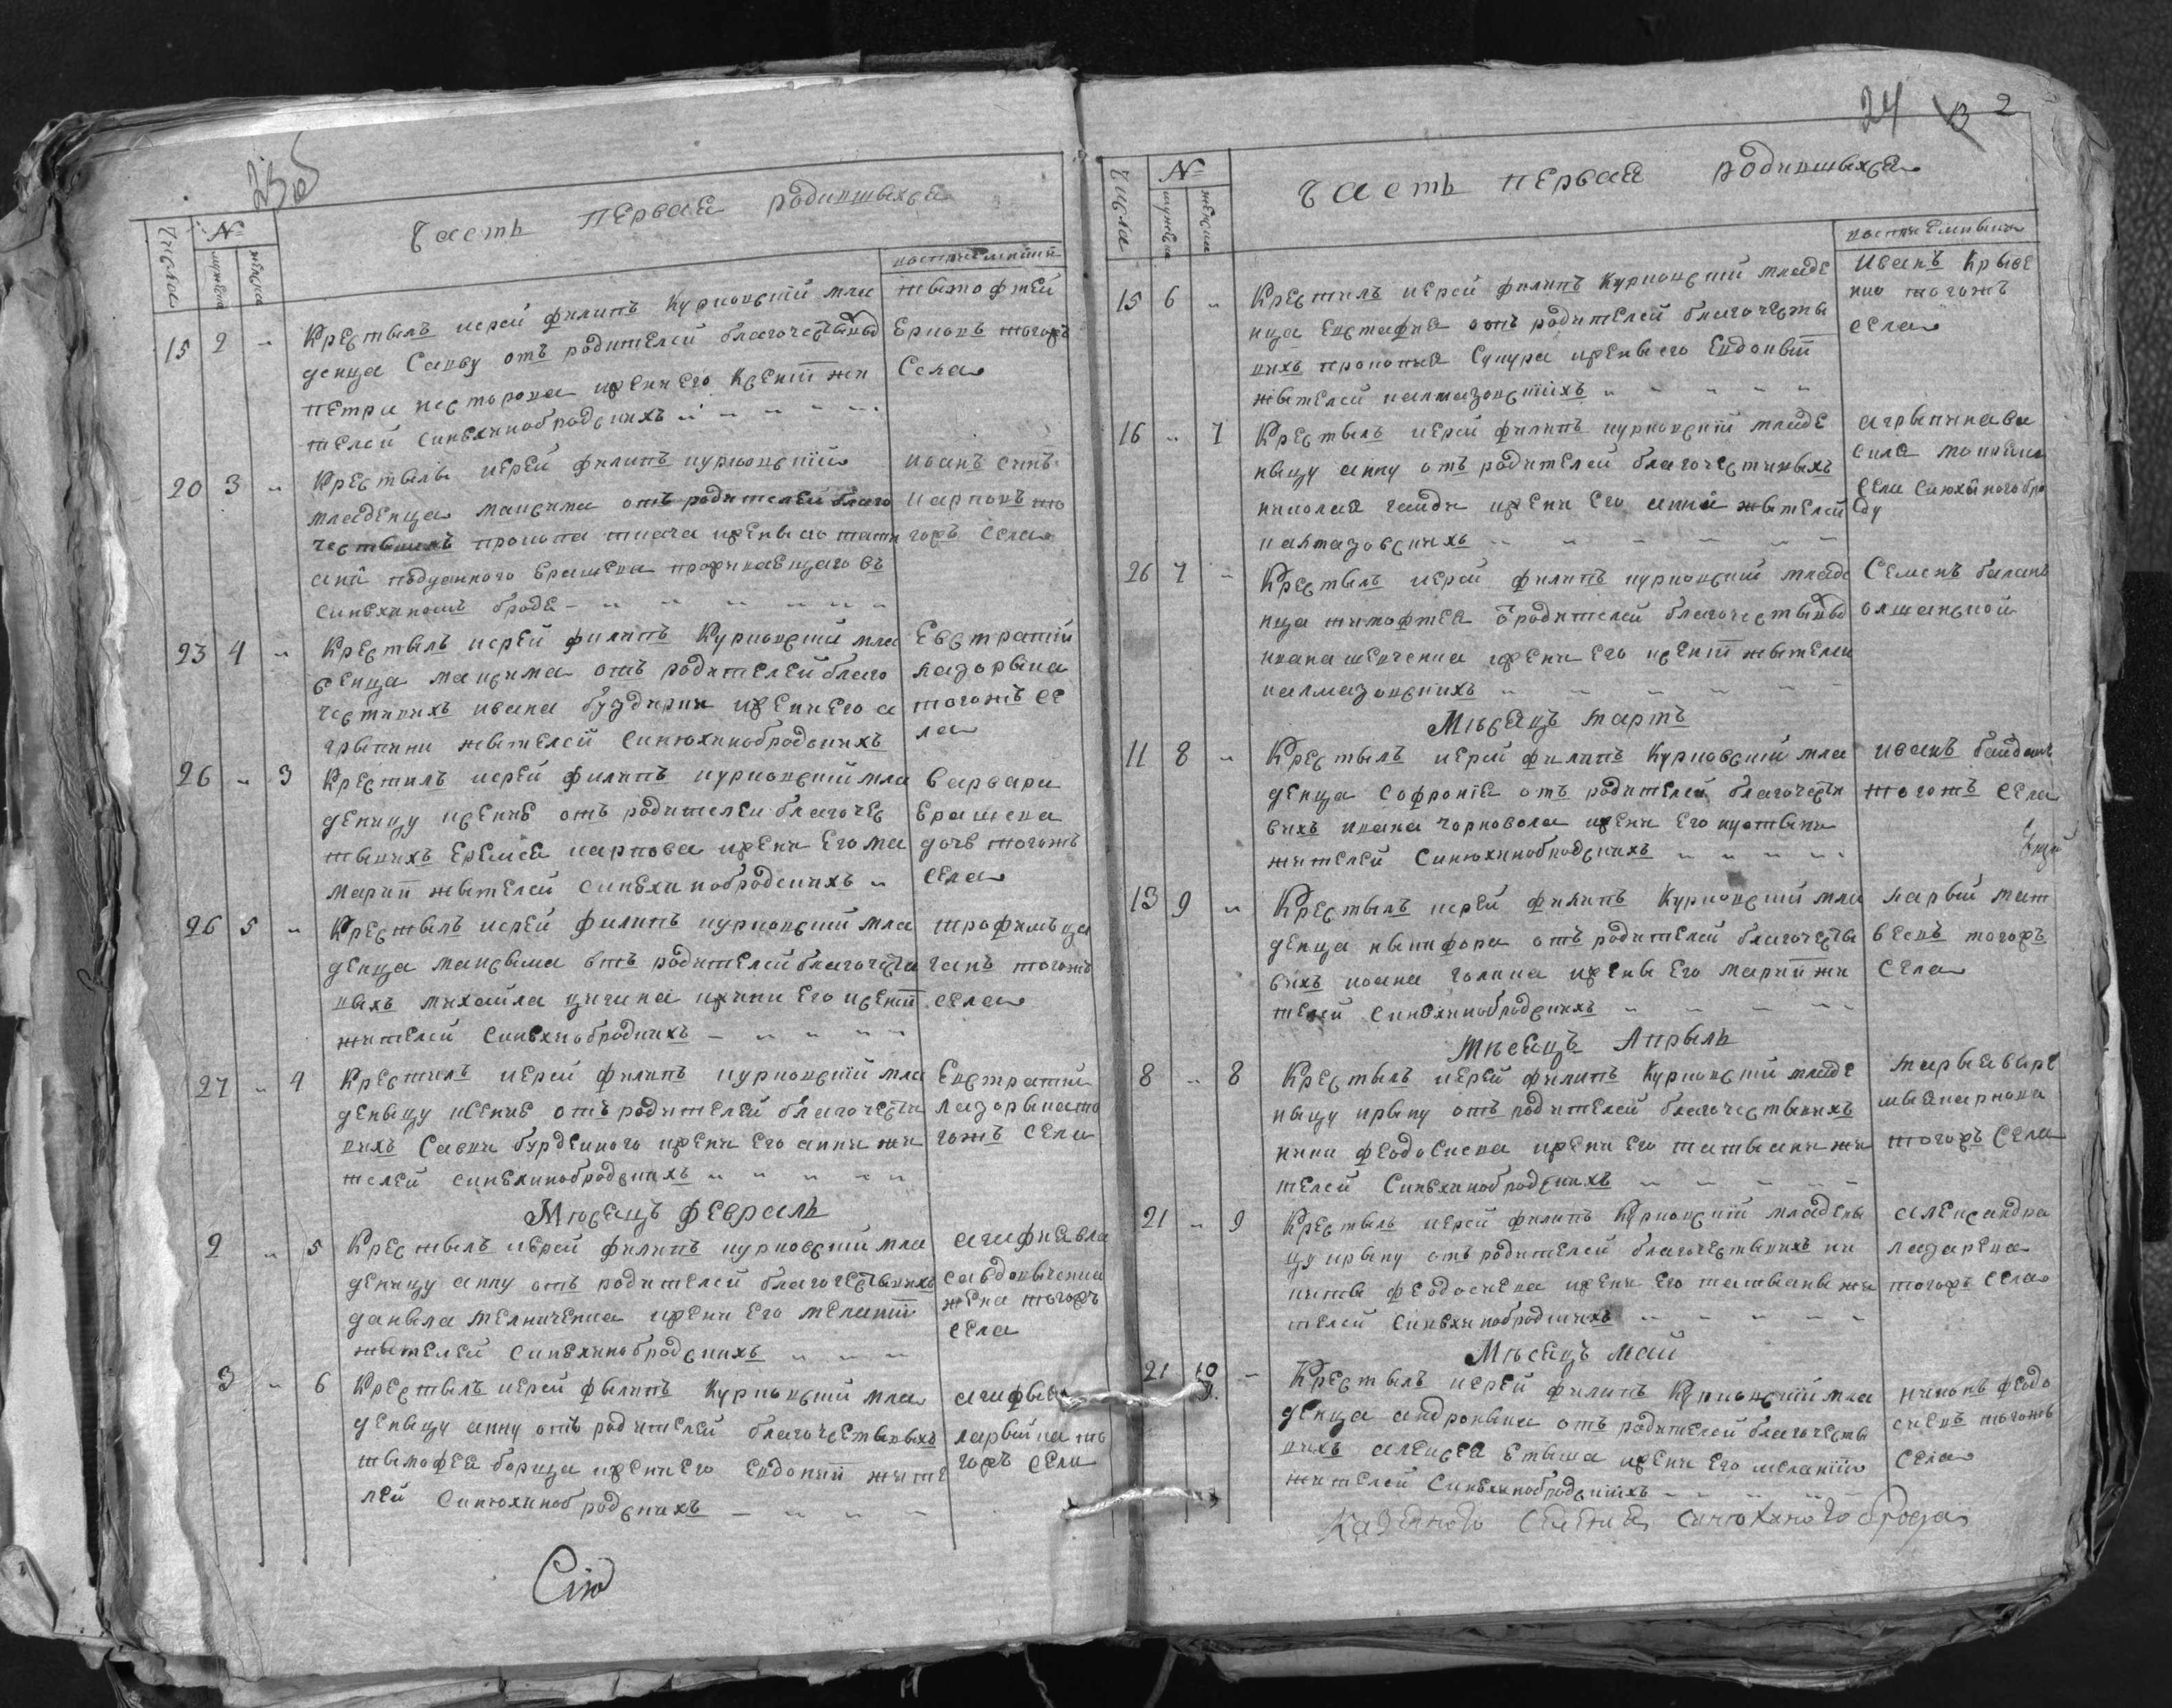 23об
часть первая родившыхся
числа № мужеска женска
воспріемникій
15 2 „ Крестылъ иерей филипъ Курновскій мла
денца Савву отъ родителей благочестывы
Петра несторова и жени его Ксеніи жи
телей синюхинобродскихъ
тимофтей
Ерковъ тогожъ
Села
20 3 „ Крестылъ иерей филипъ курновскій
младенца максима отъ родителей благо
чествивихъ прокопа ткача и жены его тати
аны подданного Ерашева проживаещаго въ
синюхиномъ броде
иванъ синъ
карповъ то
гожъ села
23 4 „ Крестылъ иерей филипъ Курновскій мла
денца максима отъ родителей благо
честивихъ ивана буздигин и жени его а
грыпини жытелей синюхинобродскихъ
Евстратій
лазорына
тогожъ се
ла
26 „ 3 Крестилъ иерей филипъ курновскій мла
деницу ксение отъ родителеи благочес
тывихъ Еремея карпова и жени его ма
марии жытелей синюхинобродскихъ
Варвара
Ерашева
дочь тогожъ
села
26 5 „ Крестылъ иерей филипъ курновскій мла
денца максыма отъ родителей благочести
выхъ михайла цигина и жини его ксеніи
жителей синюхинобродскихъ
трофимъ ца
ганъ тогожъ
села
27 „ 4 Крестилъ иерей филипъ курновскій мла
деныцу ксение отъ родителей благочести
вихъ Савки бурдейного и жени его анни жи
телей синюхинобродскихъ
Евстратій
лазорына то
гожъ села
Мѣсецъ февраль
2 „ 5 Крестылъ иерей филипъ курновскій мла
деницу анну отъ родителей благочестывихъ
данъла мелниченка и жени его меланіи
жытелей синюхинобродскихъ
агафиявла
савдовыченка
жена тогожъ
села
3 „ 6 Крестылъ иерей фылипъ Курновский мла
деныцу анну отъ родителей благочестывыхъ
тымофея борща и жени его евдокии жите
лей синюхинобродскихъ
агафые
ларвійна то
гожъ села
Сію
24 2
часть первая родившыхся
числа № мужеска женска
воспріемныки
15 6 „ Крестилъ иерей филипъ Курновсий младе
нца Евстафия отъ родителей благочесты
вихъ прокопия Сукура и жены его Евдокыи
жытелей калмазовскихъ
Иванъ Крыве
нко тогожъ
села
16 „ 7 Крестылъ иерей филипъ курновский младе
ныцу анну отъ родителей благочестивыхъ
николая гайди и жени его анни жытелей
калмазовскихъ
агрыпинава
силя
села синюхиногобро
ду
26 7 „ Крестылъ иерей филипъ курновский младе
нца тимофтея ѿ родителей благочестывы
ивана шевченка и жени его ксеніи жытелей
калмазовскихъ
Семенъ баланъ
олшанской
Мѣсяцъ мартъ
11 8 „ Крестылъ иерей филипъ Курновский мла
денца софрония отъ родителей благочести
вихъ ивана чорновола и жени его иустыны
жителей синюхинобродскихъ
иванъ байдакъ
тогожъ села
13 9 „ Крестылъ иерей филипъ Курновский мла
денца ныкифора отъ родителей благочесты
вихъ ивана голика и жены его марии жи
телей синюхинобродскихъ
ларвій мат
веевъ тогожъ
села
Мѣсецъ Апрыль
8 „ 8 Крестылъ иерей филипъ Курновский младе
ныцу ирыну отъ родителей благочествывихъ
феодосиева и жени его татыани жи
телей Синюхинобродскихъ
тогожъ села
21 „ 9 Крестылъ иерей филипъ Курновскій младены
цу ирыну отъ родителей благочествывихъ ни
киты феодосиева и жени его татыаны жи
телей синюхинобродскихъ
александра
лазарева
тогожъ села
Мѣсецъ май
21 10 „ Крестылъ иерей филипъ Курновскій мла
денца андроныка отъ родителей благочесты
вихъ алексея етыма и жени его меланіи
жителей Синюхинобродскихъ
никонъ феодо
сиевъ тогожъ
села
Казенного селения синюхиногоброда